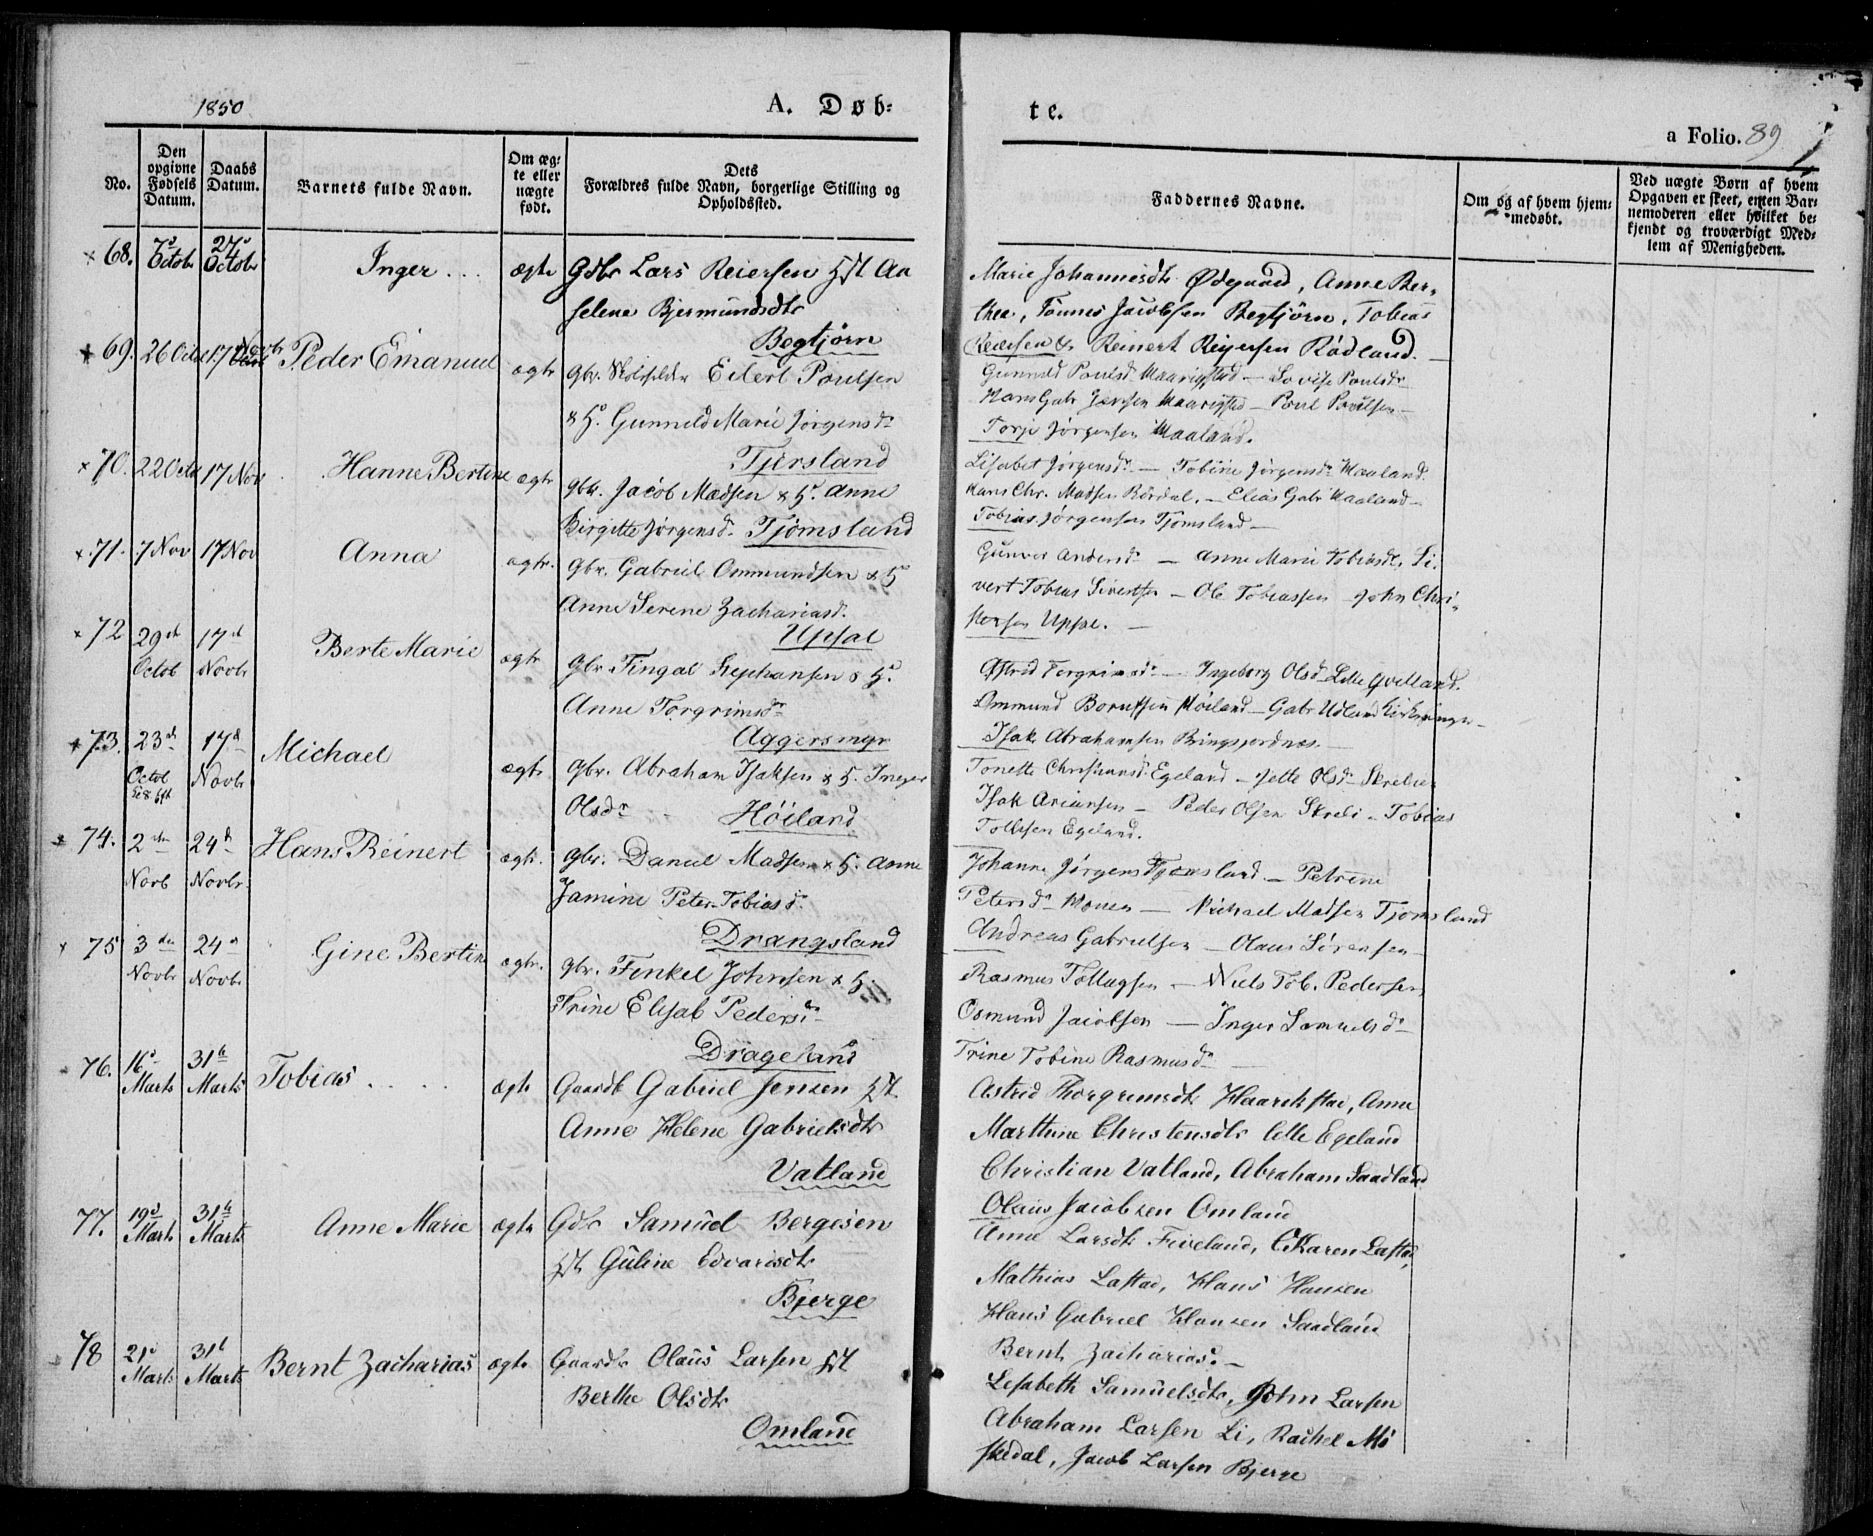 1850
A. Døb-
te.
a Folio. 89
No.
Den opgivne Fødsels Datum.
Daabs Datum.
Barnets fulde Navn.
Om ægte eller uægte født.
Dets Forældres fulde Navn, borgerlige Stilling og Opholdssted.
Faddernes Navne.
Om og af hvem hjemmedøbt.
Ved uægte Børn af hvem Opgaven er skeet, enten Barnemoderen eller hvilket bekjendt og troværdigt Medlem af Menigheden.
68. 7d Octob 27d Octob Inger ægte Gdbr Lars Reiersen Hst An
selene Bjermundsdtr
Begtjørn
Marie Johannesdtr Ødegaard, Anne Ber-
thea, Tønnes Jacobsen Begtjørn, Tobias
Reiersen & Reinert Reiersen Rødland.
69. 26 Octb 17 Novbr Peder Emanuel ægte gbr. Eilert Poulsen
& H. Gunneld Marie Jørgensdr
Tjersland
Gunneld Poulsd. Maarigstad – Lovise Poulsdr
Hans Gabr Jensen Maarigstad – Poul Poulsen –
Torje Jørgensen Maaland.
70. 22 Octb 17 Nov Hanne Bertine ægte gbr. Jacob Madsen & H. Anne
Birgitte Jørgensd. Tjømsland
Lisabet Jørgensdr. – Tobine Jørgensdr Maaland.
Hans Chr. Madsen Rørdal. – Elias Gabr Maaland –
Tobias Jørgensen Tjømsland –
71. 7 Nov 17 Nov Anna ægte. gbr. Gabriel Ommundsen & H
Anne Serene Zachariasdr.
Upsal
Gunver Andersdr – Anne Marie Tobiasdtr, Si-
vert Tobias Sivertsen – Ole Tobiassen – John Chri-
stensen Upsal. –
72 29de Octob 17d Novbr Berte Marie ægte gbr Tingal Stephansen & H.
Anne Torgrimsdr
Aggersmyr
Astrid Torgrimsdr – Ingeborg Olsd Lille Qvelland.
Ommund Borufsen Høiland – Gabr Udland
Isak Abrahamsen Bringsjordnes. –
73. 23d Octob 17d Novbr Michael ægte gbr. Abraham Isaksen & H. Inger
Olsdr Høiland
Tonette Christiansd. Egeland – Jette Olsdr Skrelie
Isak Ariansen – Peder Olsen Skreli – Tobias
Tollefsen Egeland.
74. 2den Novb 24d Novbr. Hans Reinert ægte. gbr. Daniel Madsen & H. Anne
Jamine Peter Tobiasd.
Drangsland
Johanne Jørgensd Tjømsland – Petrine
Petersdr Monen – Michael Madsen Tjømsland
Andreas Gabrielsen – Olaus Sørensen –
75 3die Novbr 24d Novbr Gine Bertine ægte. gbr. Finkel Johnsen & H.
Trine Elisab Pedersdr
Drageland
Rasmus Tollagsen – Niels Tob. Pedersen,
Osmund Jacobsen – Inger Samuelsdr
Trine Tobine Rasmusdr –
76. 16d Marts 31te Marts Tobias ægte Gaardb Gabriel Jensen Hst
Anne Helene Gabrielsdtr
Vatland
Astrid Thorgrimsdtr Haarikstad, Anne
Marthine Christensdtr Lille Egeland
Christian Vatland, Abraham Saadland
Olaus Jacobsen Omland
77. 19d Marts 31te Marts Anne Marie ægte Gdbr Samuel Bergesen
Hst Guline Edvardsdtr
Bjerge
Anne Larsdtr Fiveland, Karen Lastad,
Mathias Lastad, Hans Hansen
Hans Gabriel Hansen Saadland
78 21d Marts 31te Marts Bernt Zacharias ægte Gaardbr Olaus Larsen Hst
Berthe Olsdtr
Omland
Bernt Zacharias. –
Lisabeth Samuelsdtr, John Larsen
Abraham Larsen Li, Rachel Mö
skedal, Jacob Larsen Bjerge